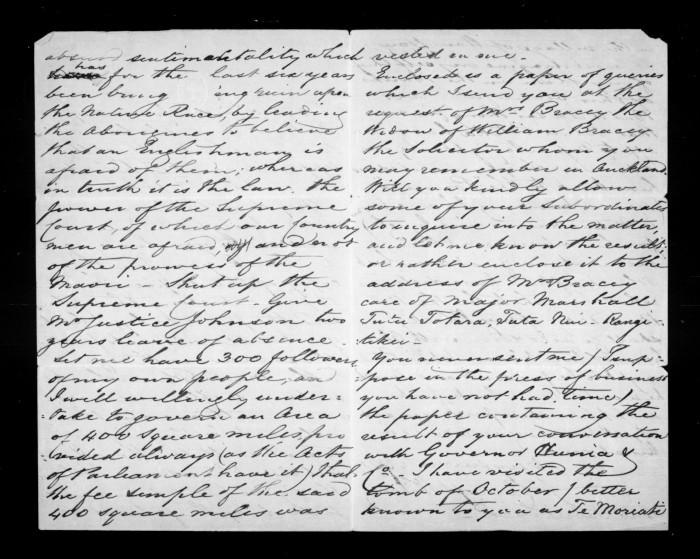 absurd sentimentality which
has for the last six years
been bring ing ruin upon
the Native Race, by leading
the Aborigines to believe
that an Englishman is
afraid of them; whereas
in truth it is the law. The
power of the Supreme
Court, of which our Country
men are afraid, and not
of the prowess of the
Maori - Shut up the
Supreme Court - Give
Mr Justice Johnson two
years leave of absence -
Let me have 300 followers
of my own people, and
I will willingly under=
=take to govern an Area
of 400 square miles, pro
=vided always (as the Acts
of Parliament have it) that
the fee simple of the said
400 square miles was
vested in me.
Enclosed is a paper of queries
which I send you at the
request of Mrs Bracey the
Widow of William Bracey
the Solicitor whom you
may remember in Auckland.
Will you kindly allow
some of your subordinates
to inquire into the matter,
and let me know the result;
or rather enclose it to the
address of Mrs Bracey
care of Major Marshall
Tutu Totara, Tuta Nui - Rangi
tikei -
You never sent me (I sup=
pose in the press of business
you have not had time)
the paper containing the
result of your conversation
with Governor &
I have visited the
tomb of October (better
known to you as Te Moriati